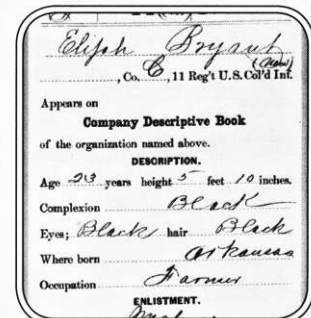 Elijah Bryant
(New)
, Co. C, 11 Reg't U.S. Col'd Inf.
Appears on
Company Descriptive Book
of the organization named above.
DESCRIPTION.
Age 23 years height 5 feet 10 inches.
Complexion Black
Eyes; Black hair Black
Where born Arkansas
Occupation Farmer
ENLISTMENT.